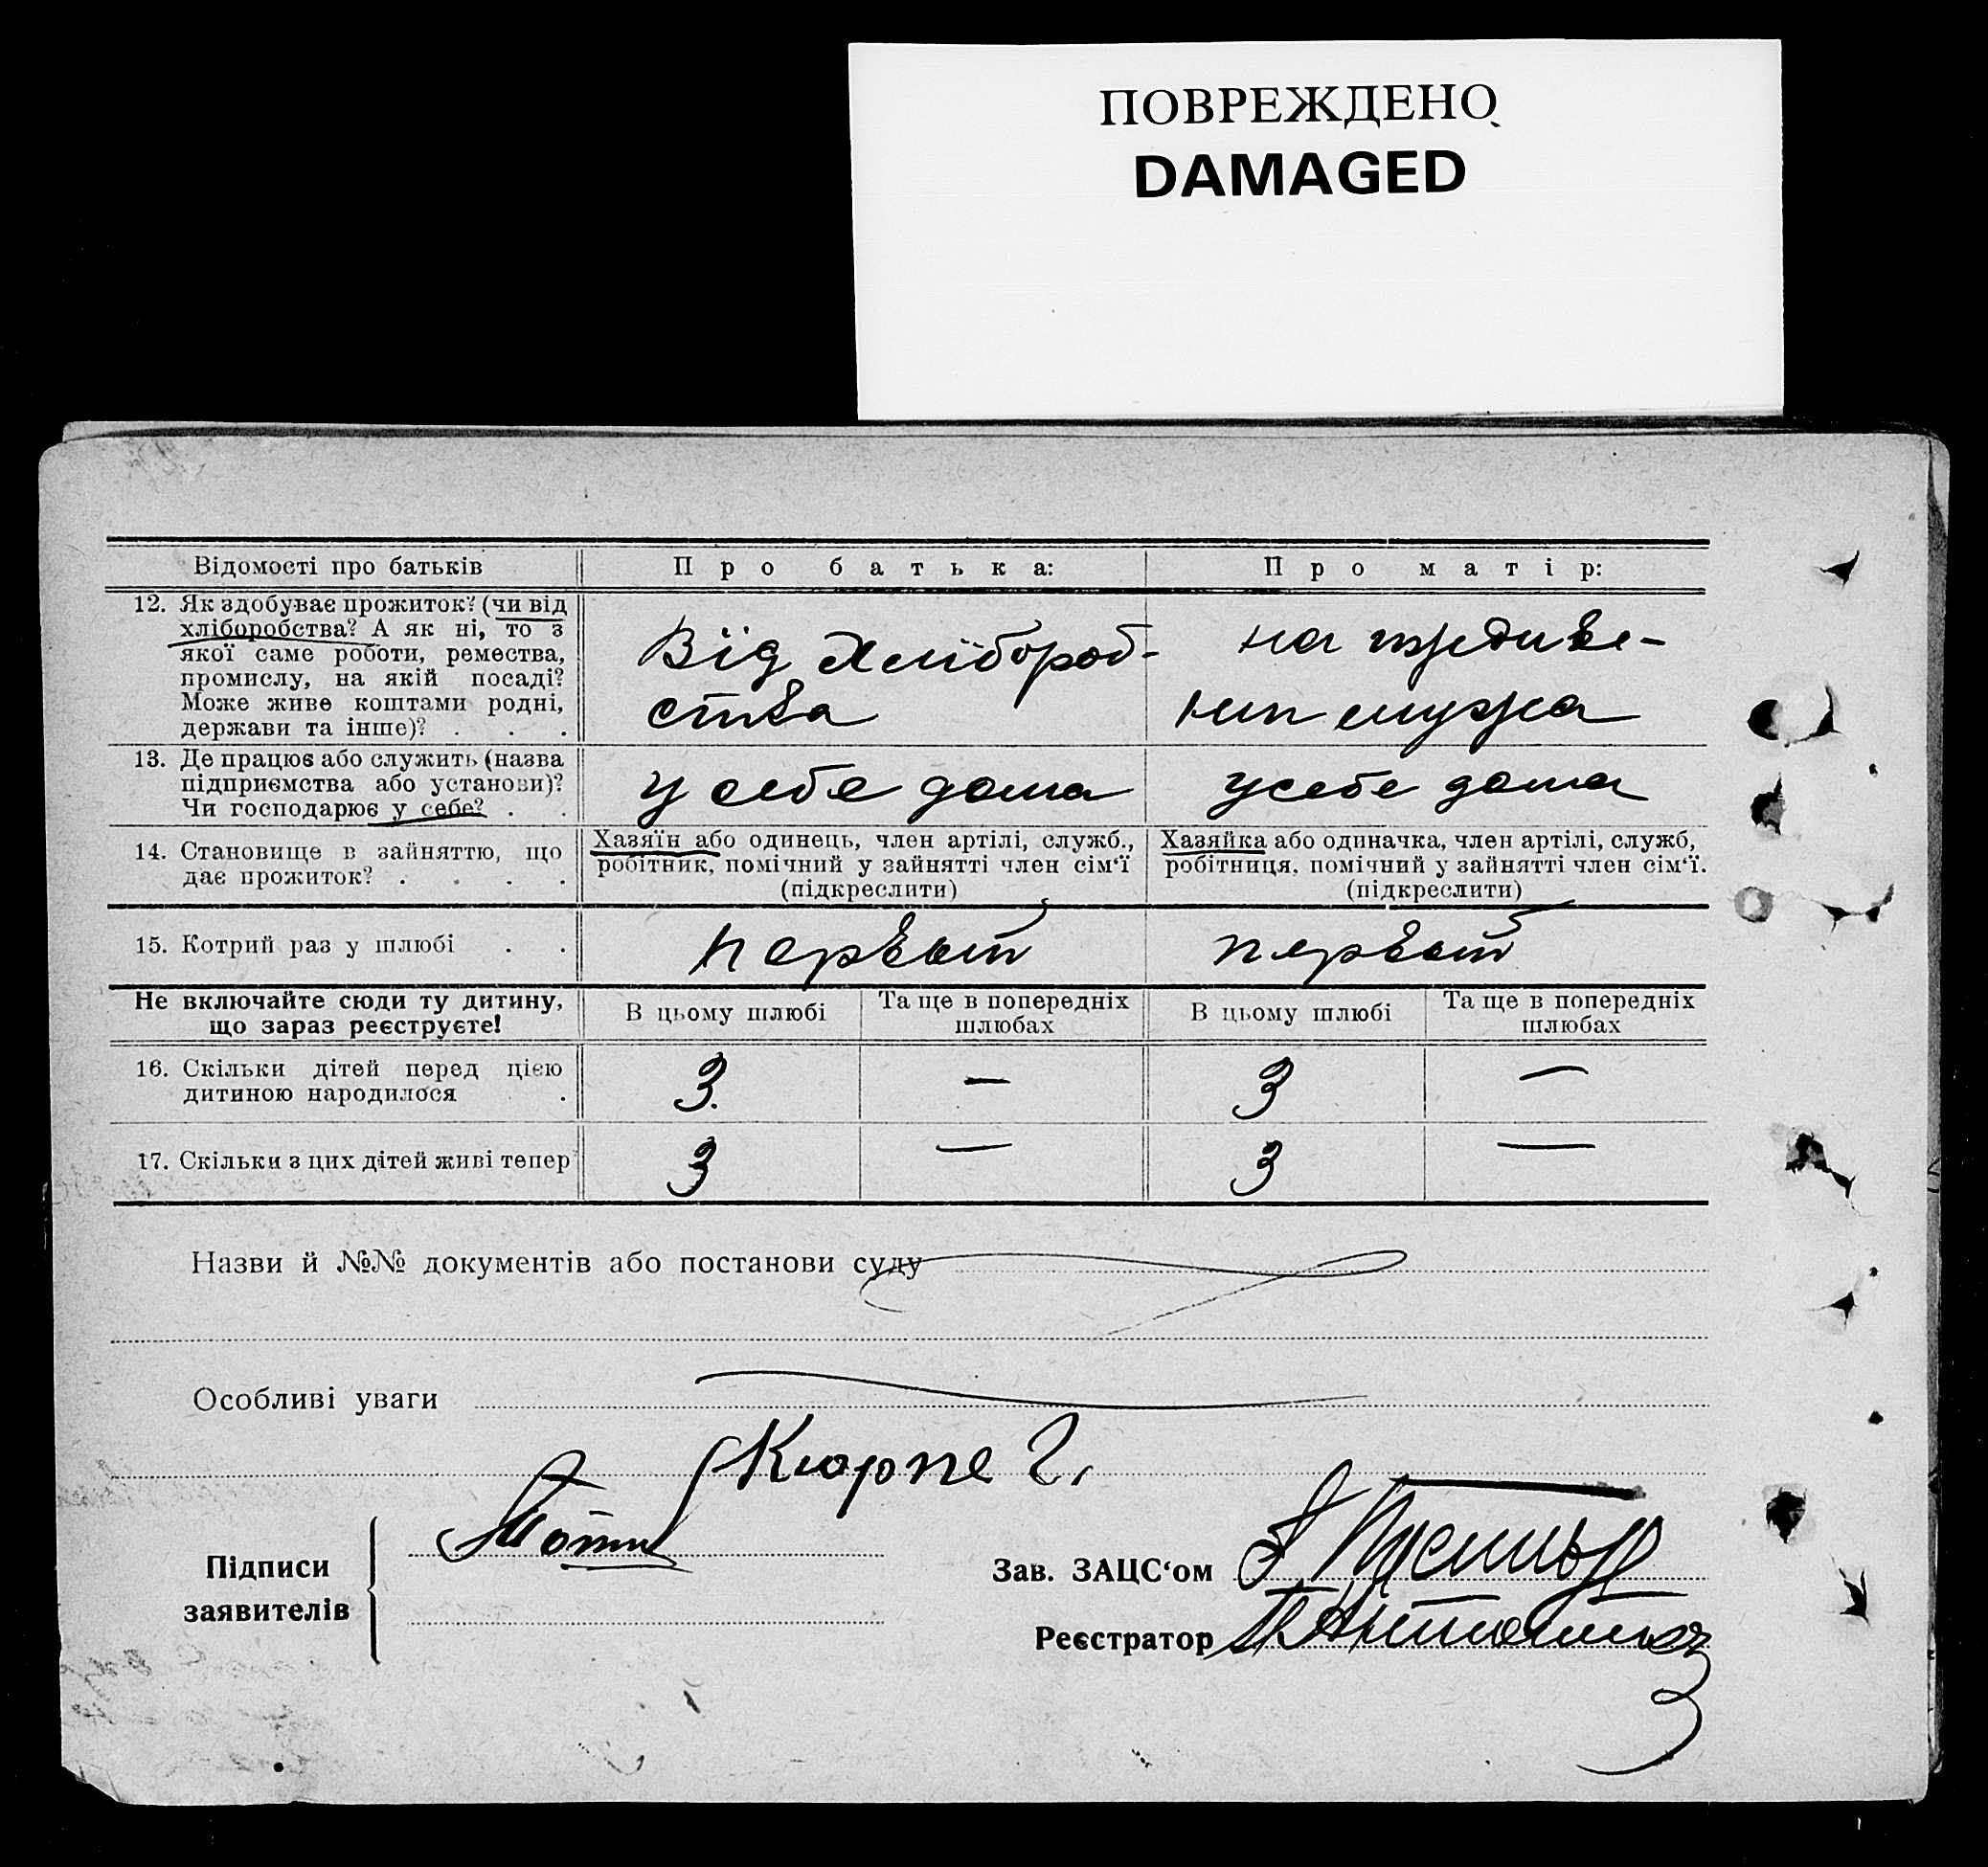 ПОВРЕЖДЕНО
DAMAGED
Відомості про батьків
Про батька:
Про матір:
12. Як здобуває прожиток? (чи від
хліборобства? А як ні, то з
якої саме роботи, ремества,
промислу, на якій посаді?
Може живе коштами родні,
держави та інше)? . . .
Від Хлібороб-
ства
на иждиве-
нии мужа
13. Де працює або служить (назва
підприємства або установи)?
Чи господарює у себе? . .
у себе дома
у себе дома
14. Становище в зайняттю, що
дає прожиток? . . . .
Хазяїн або одинець, член артілі, служб.,
робітник, помічний у зайнятті член сім‘ї
(підкреслити)
Хазяйка або одиначка, член артілі, служб,
робітниця, помічний у зайнятті член сім‘ї.
(підкреслити)
15. Котрий раз у шлюбі . .
первый
первый
Не включайте сюди ту дитину,
що зараз реєструєте!
В цьому шлюбі
Та ще в попередніх
шлюбах
В цьому шлюбі
Та ще в попередніх
шлюбах
16. Скільки дітей перед цією
дитиною народилося .
3.
—
3
—
17. Скільки з цих дітей живі тепер
3
—
3
—
Назви й №№ документів або постанови суду
Особливі уваги
Кюрпе Г.
Підписи
заявителів
Зав. ЗАЦС‘ом
Реєстратор